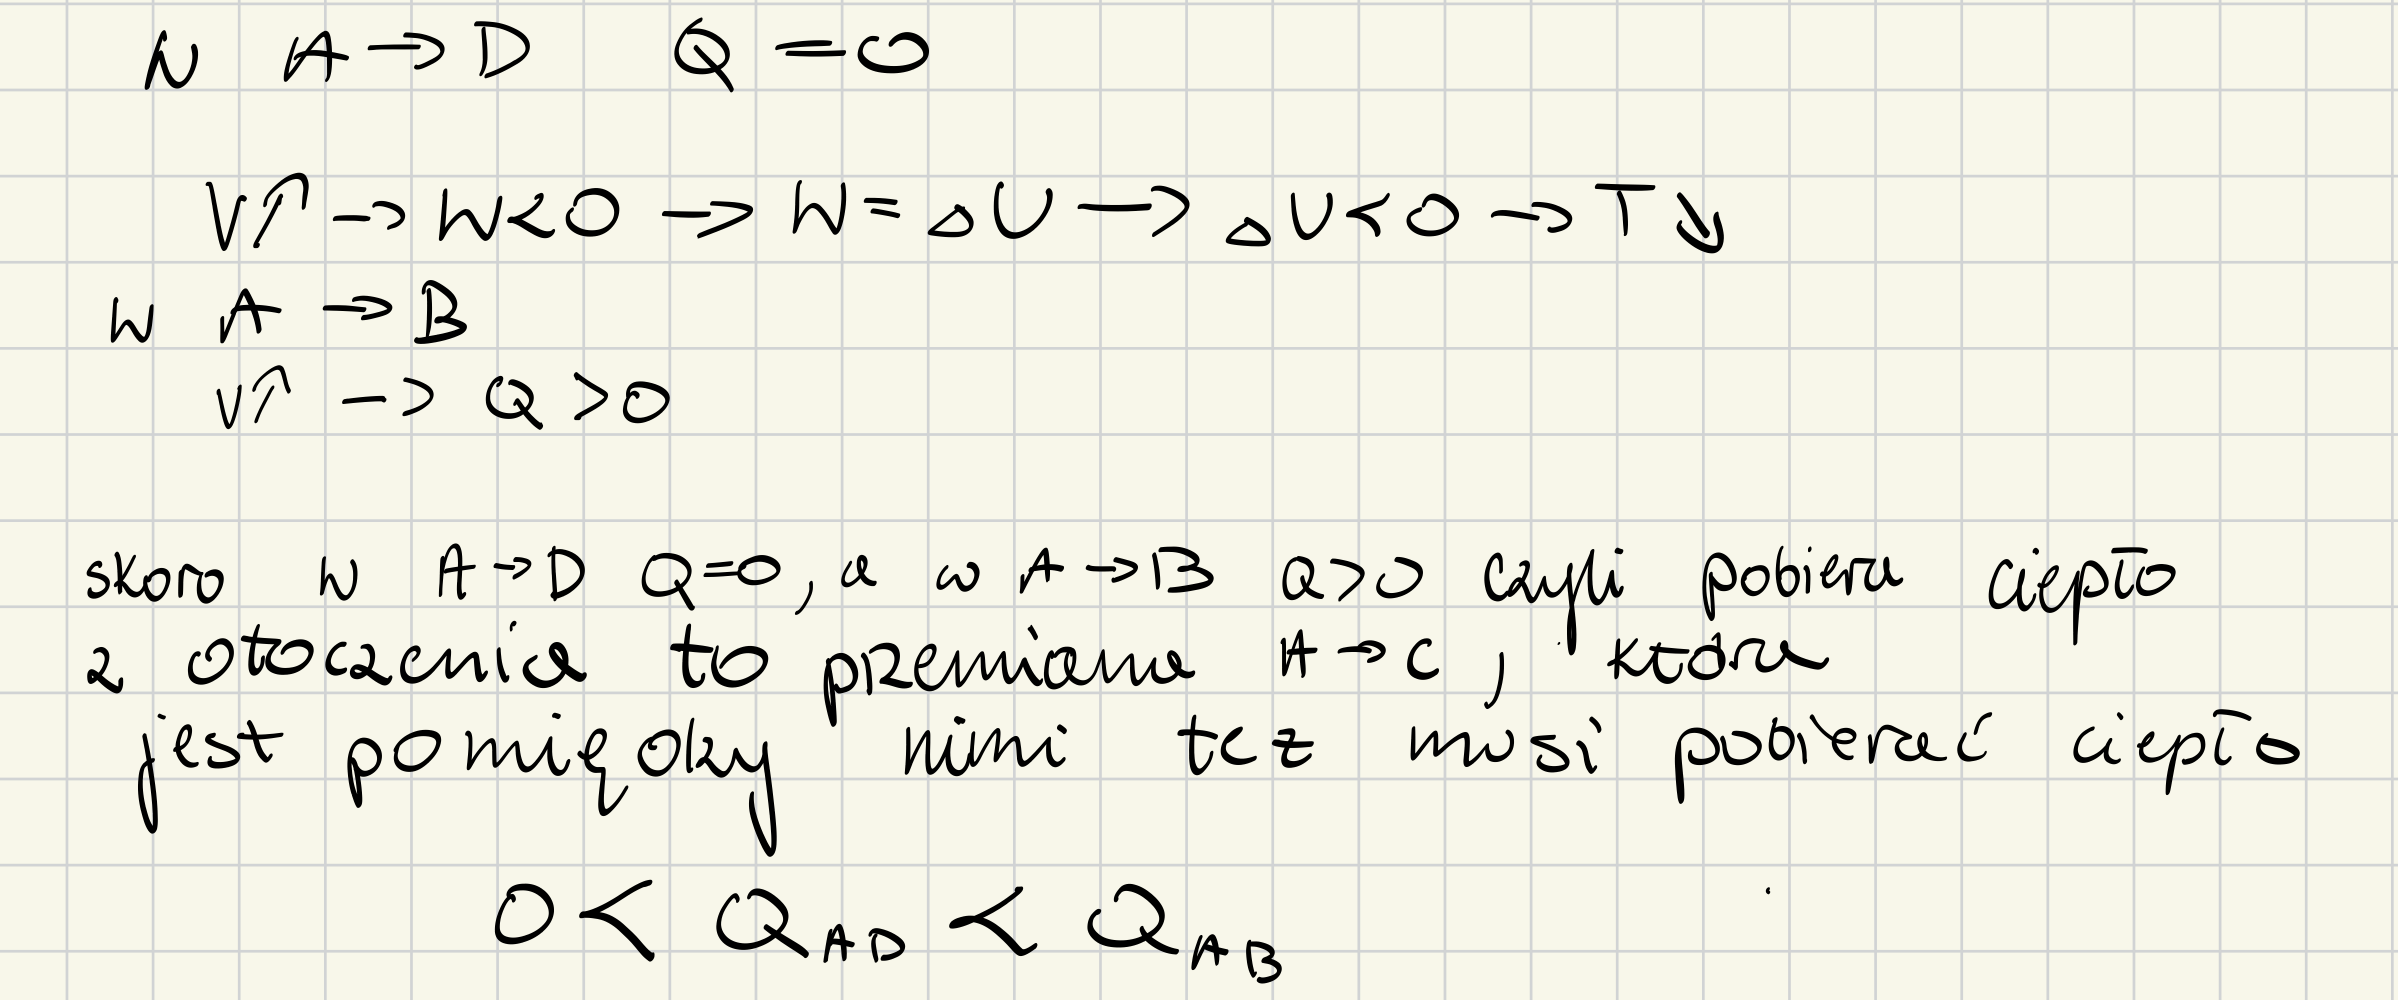 W A → D Q = 0
V↑ → W < 0 → W = ΔU → ΔU < 0 → T ↘
W A → B
V↑ → Q > 0
skoro W A → D Q = 0, a w A → B Q > 0 czyli pobiera ciepło
z otoczenia to przemiana A → C, która
jest pomiędzy nimi też musi pobierać ciepło
0 < Q_AD < Q_AB